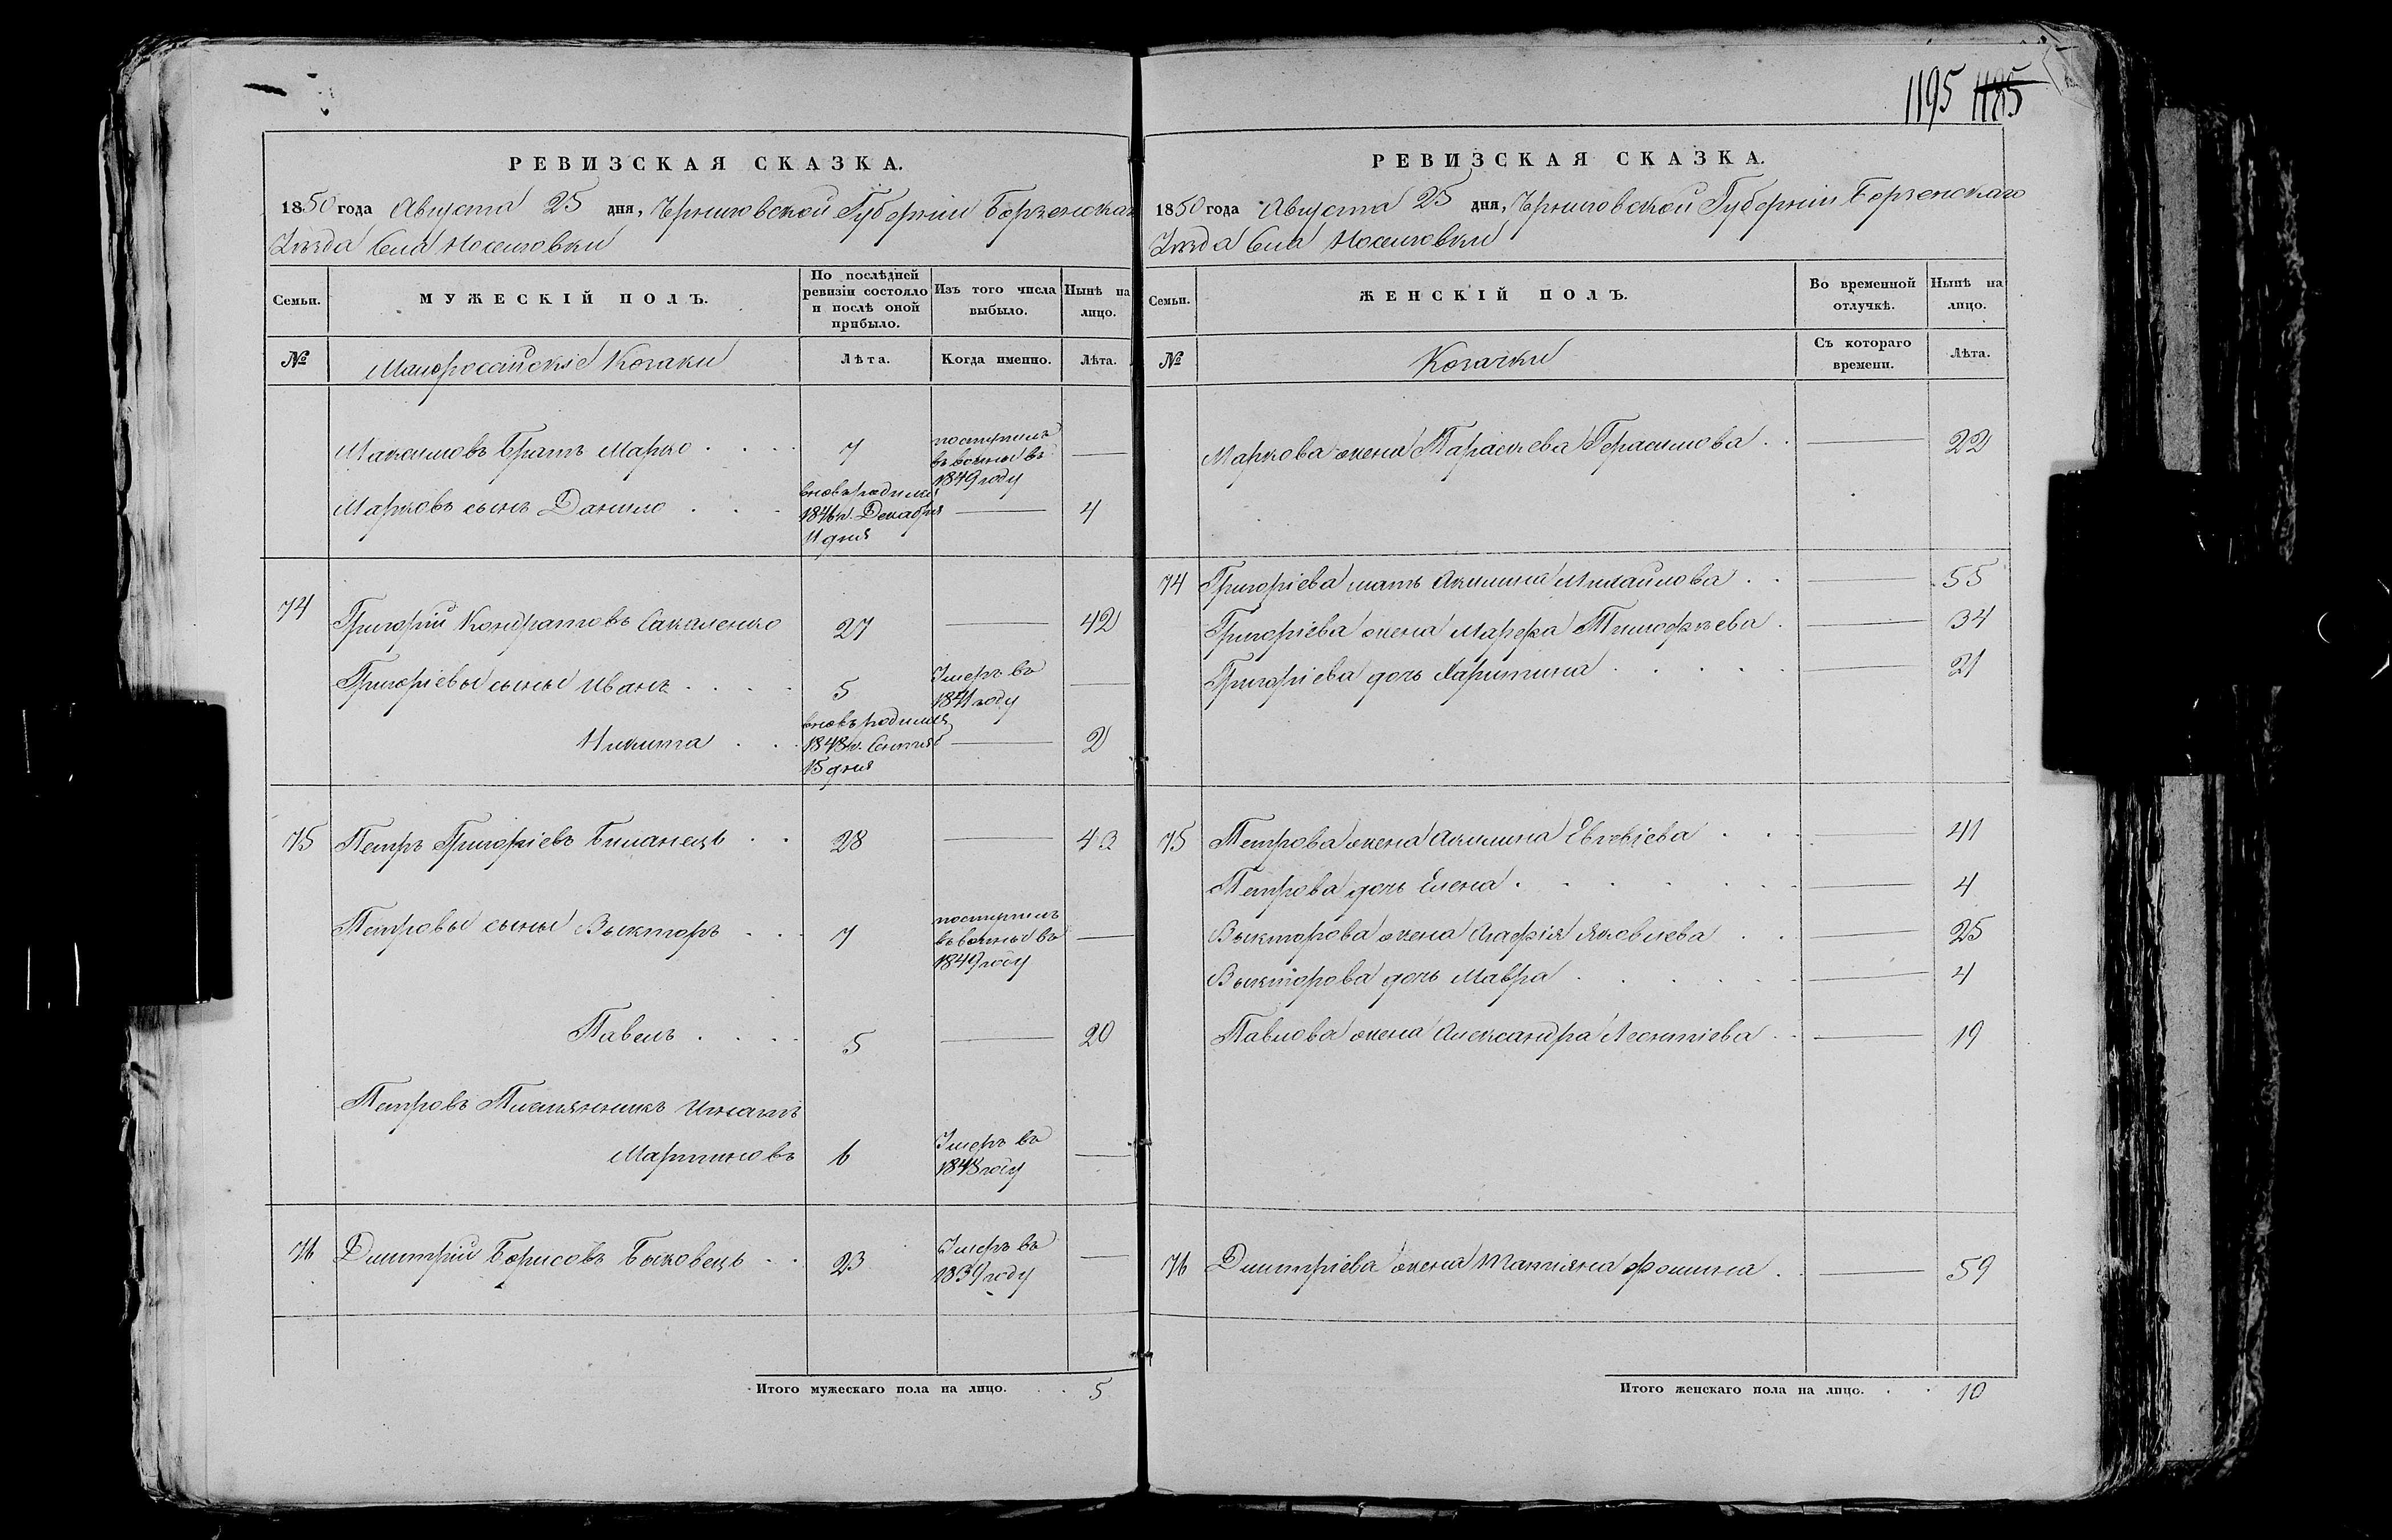 1195 1185
РЕВИЗСКАЯ СКАЗКА.
1850 года Августа 25 дня, Черниговской Губернии Борзенскаго
Уезда Села Носеловки
Семьи. МУЖЕСКІЙ ПОЛЪ. По послѣдней ревизіи состояло и послѣ оной прибыло. Изъ того числа выбыло. Нынѣ на лицо.
№ Малороссійскіе Козаки Лѣта. Когда именно. Лѣта.
Максимовъ братъ Марко 7 поступилъ въ военные въ 1849 году —
Марковъ сынъ Данило вновьродился 1846 г. Декабря 11 дня — 4
74 Григорій Кондратовъ Сакаленко 27 — 42
Григоріевы сыны Иванъ 5 Умеръ въ 1841 году —
Никита вновьродился 1848 г. Сентяб 15 дня — 2
75 Петръ Григоріевъ Биланецъ 28 — 43
Петровы сыны Выкторъ 7 поступилъ въ военные въ 1849 году —
Павелъ 5 — 20
Петровъ Племянникъ Игнатъ
Мартиновъ 6 Умеръ въ 1848 году —
76 Димитрій Борисовъ Быковецъ 23 Умеръ въ 1839 году —
Итого мужескаго пола на лицо. 5
РЕВИЗСКАЯ СКАЗКА.
1850 года Августа 25 дня, Черниговской Губерніи Борзенскаго
Уезда Села Носеловки
Семьи. ЖЕНСКІЙ ПОЛЪ. Во временной отлучкѣ. Нынѣ на лицо.
№ Козачки Съ котораго времени. Лѣта.
Маркова жена Параскева Герасимова — 22
74 Григоріева мать Акилина Михайлова — 55
Григоріева жена Марфа Тимофѣева — 34
Григоріева дочь Харитина — 21
75 Петрова жена Акилина Евсевіева — 41
Петрова дочь Елена — 4
Выкторова жена Агафія Яковлева — 25
Выкторова дочь Мавра — 4
Павлова жена Александра Леонтіева — 19
76 Димитріева жена Татіяна Фомина — 59
Итого женскаго пола на лицо. 10